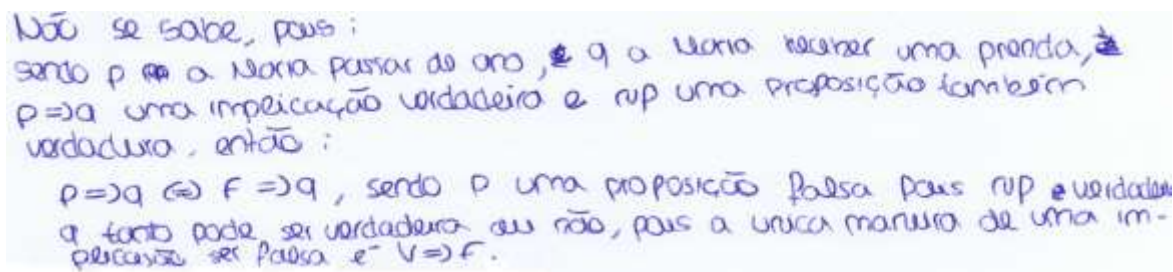 Não se sabe, pois:
sendo p a Maria passar de ano, e q a Maria receber uma prenda, e
p=>q uma implicação verdadeira e ~p uma proposição também
verdadeira, então:
p=>q <=> F =>q, sendo p uma proposição falsa pois ~p e verdadeira
q tanto pode ser verdadeira ou não, pois a unica maneira de uma im-
plicação ser falsa é V=>F.